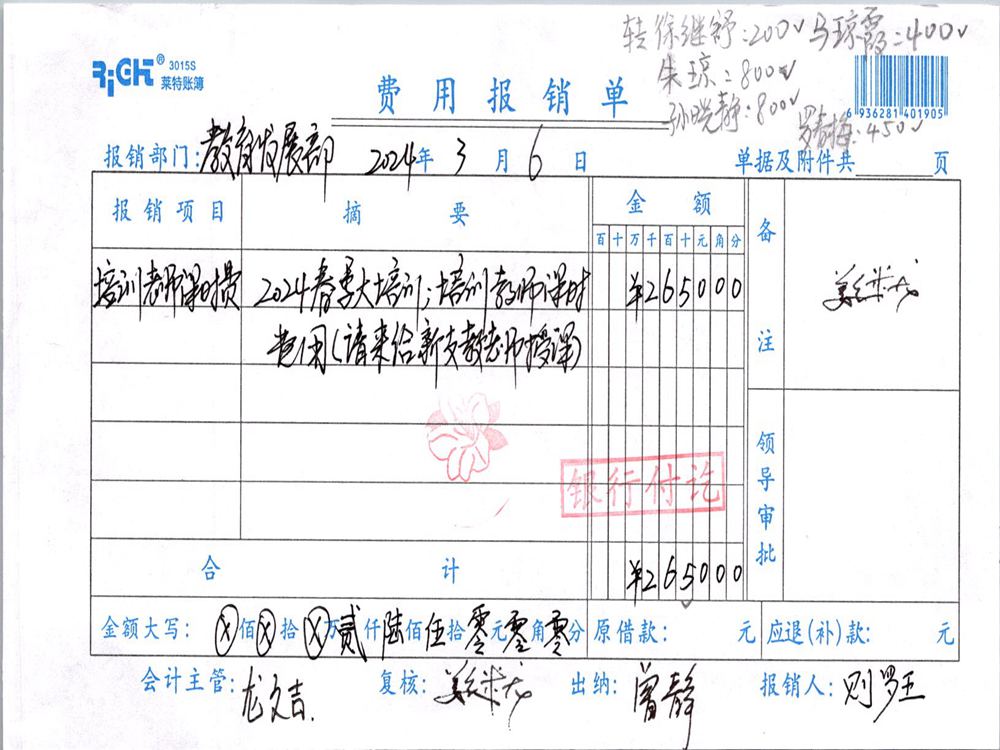 转徐继舒:200√ 马琼霞:400√
朱琼:800√
孙晓静:800√
罗春梅:450√
RiGHT® 3015S
莱特账簿
费用报销单
6 936281 401905
报销部门:教育发展部 2024年3月6日 单据及附件共 页
报销项目 摘要 金额 备注
百十万千百十元角分
培训老师课时费 2024春季大培训;培训教师课时 ¥265000
费用(请来给新支教老师授课)
银行付讫
领导审批
合计 ¥265000
金额大写:ⓧ佰ⓧ拾ⓧ万贰仟陆佰伍拾零元零角零分 原借款: 元 应退(补)款: 元
会计主管:龙文吉. 复核: 出纳:曾静 报销人: